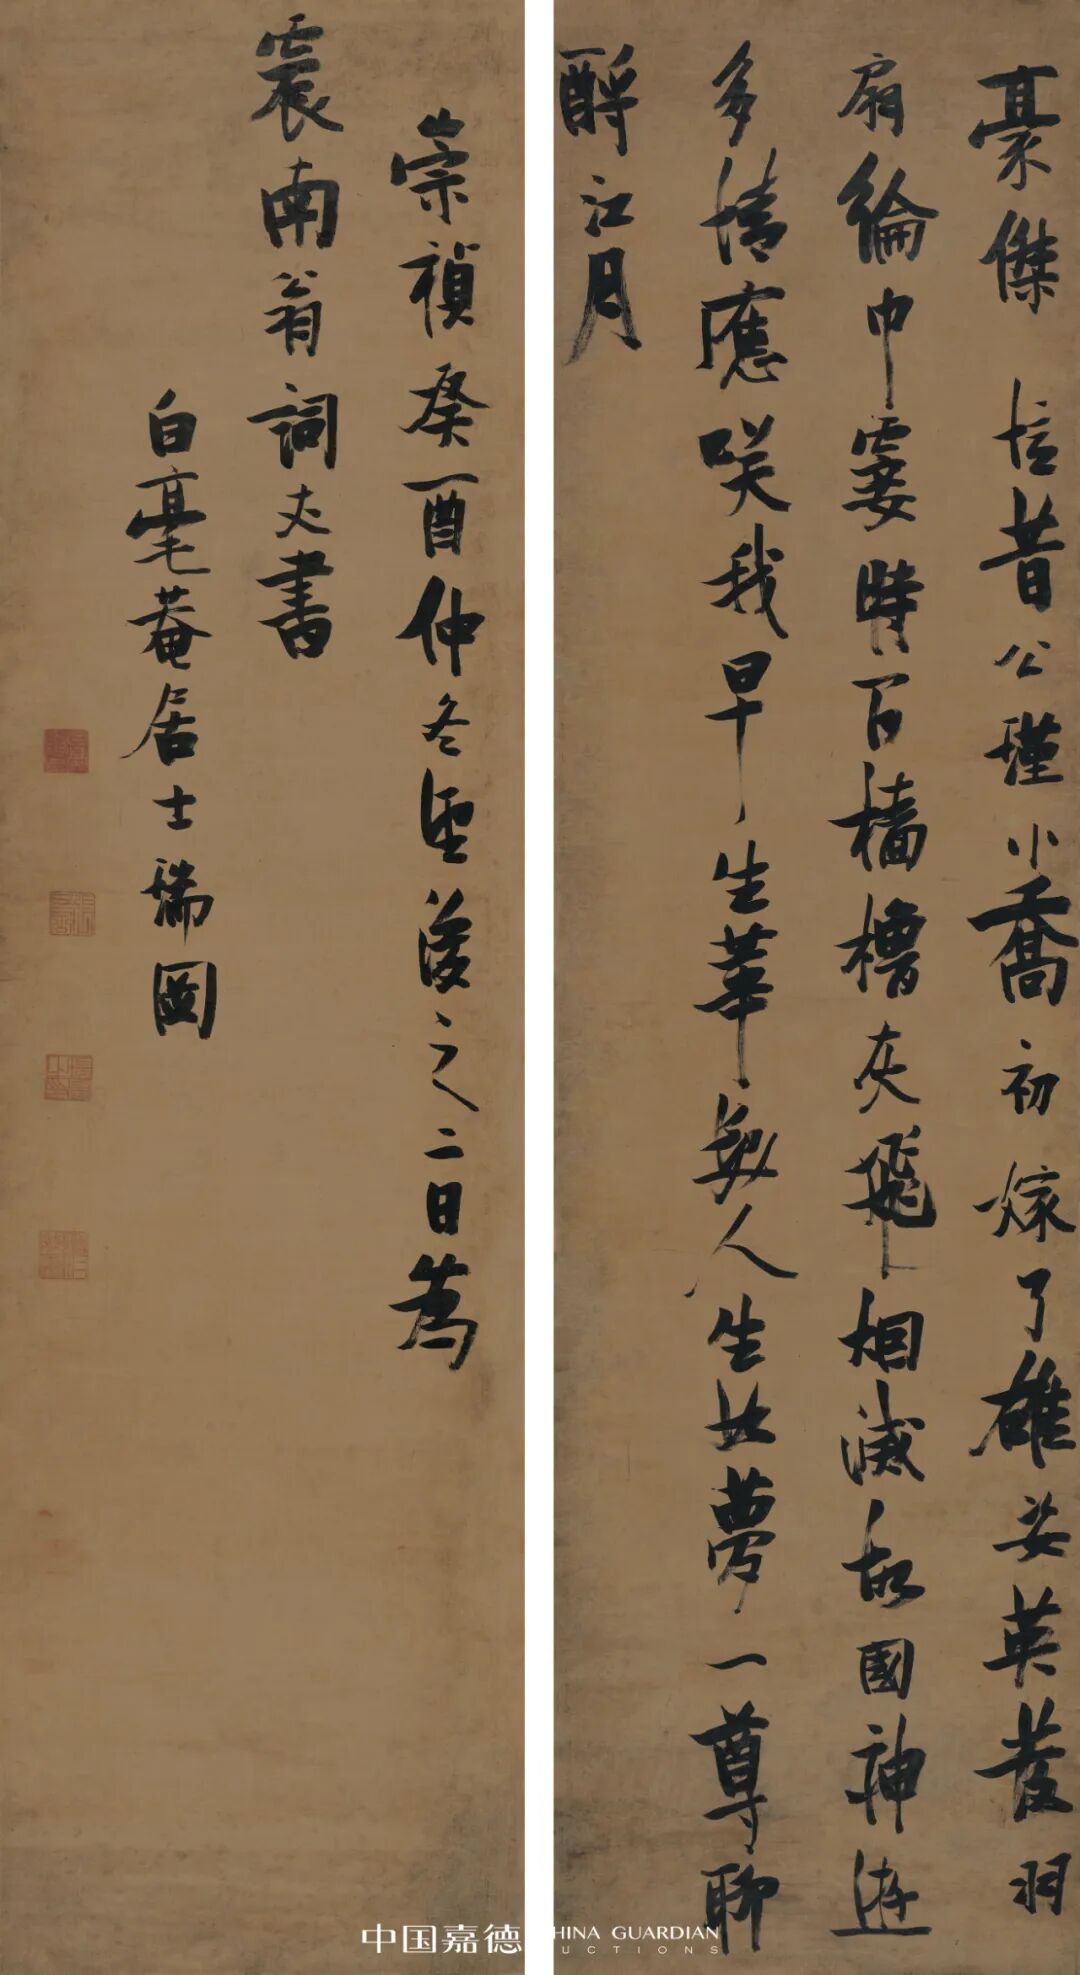 豪傑憶昔公瑾小喬初嫁了雄姿英發羽
扇綸巾霎時間檣櫓灰飛烟滅故國神遊
多情應咲我早生華髮人生如夢一尊聊
酹江月
崇禎癸酉仲冬望後之二日為
震南翁詞丈書
白毫菴居士瑞圖
中国嘉德 HINA GUARDIAN
UCTIONS